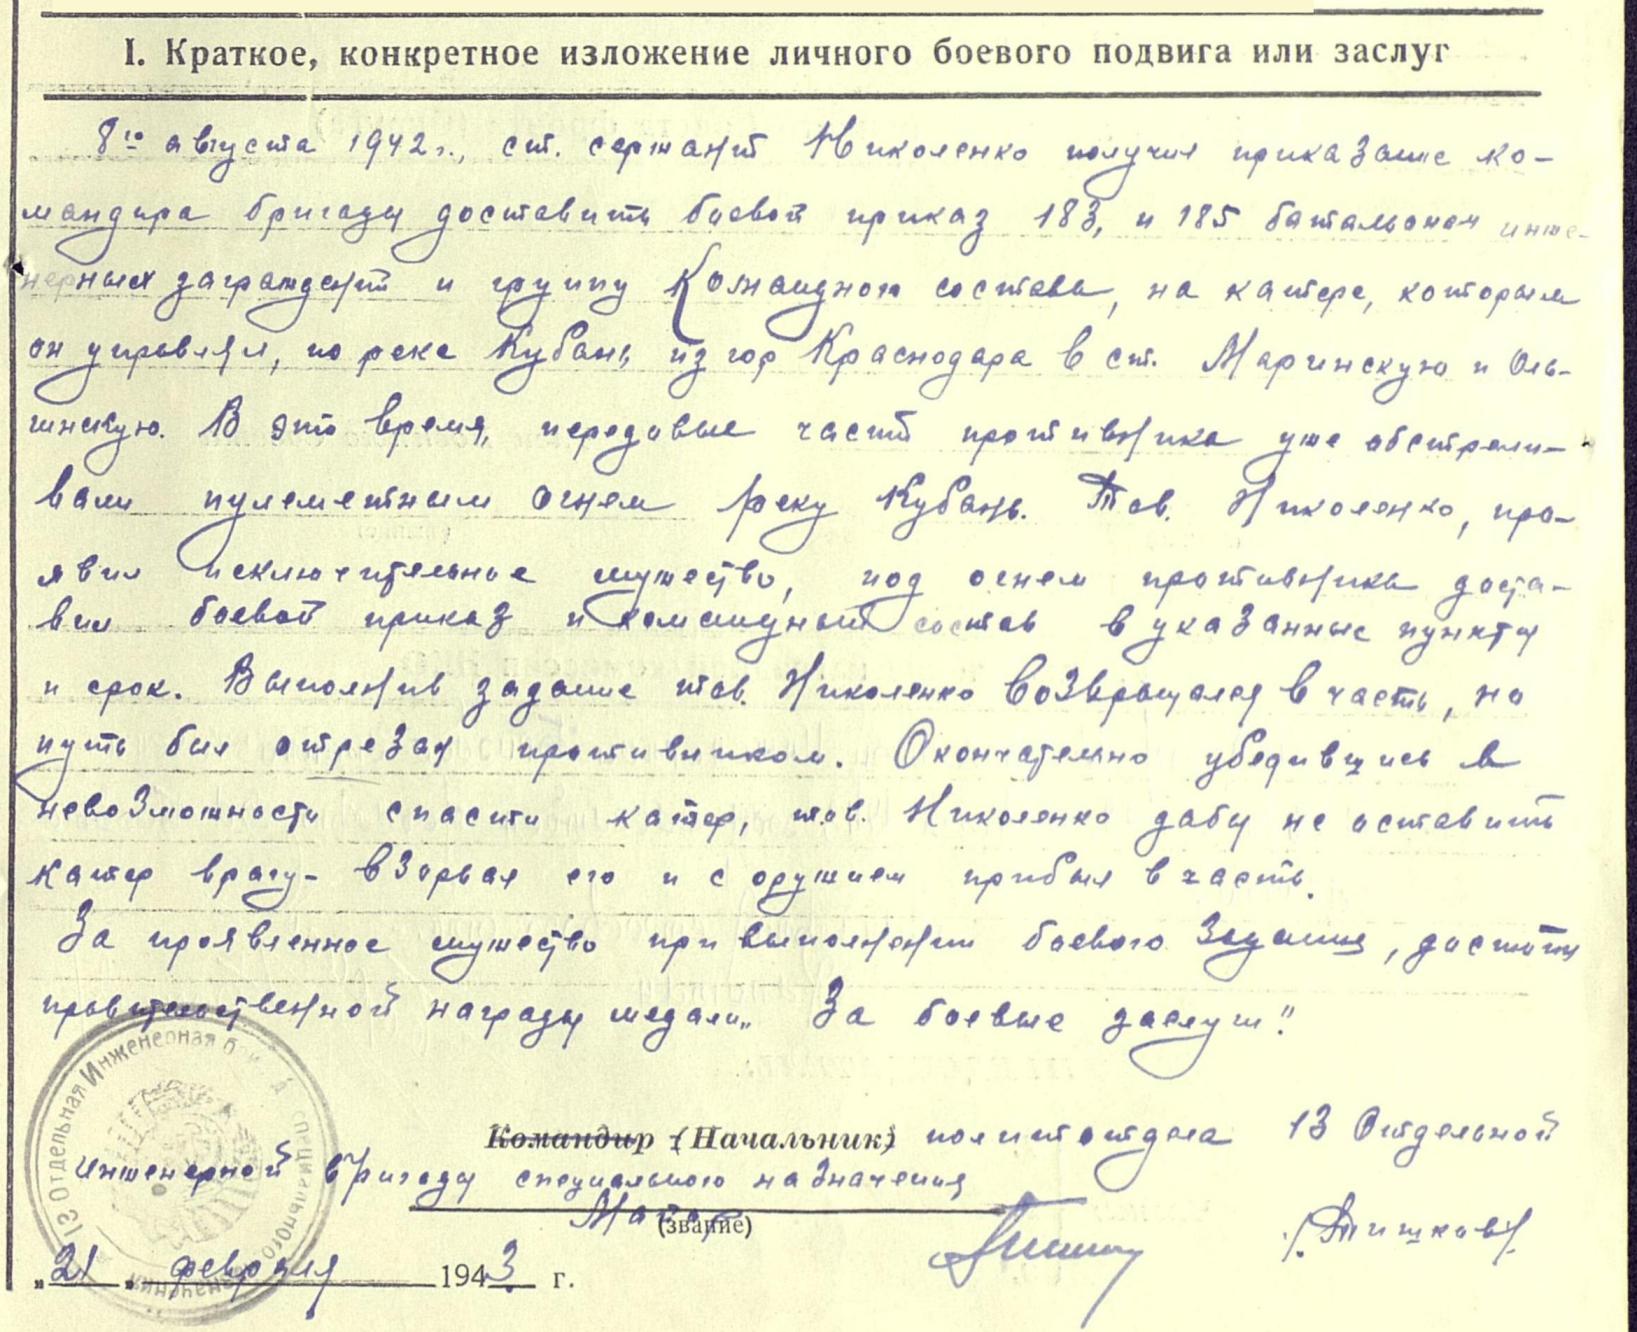 I. Краткое, конкретное изложение личного боевого подвига или заслуг
8го августа 1942г., ст. сержант Николенко получил приказание ко-
мандира бригады доставить боевой приказ 183, и 185 батальонам инже-
нерных заграждений и группу Командного состава, на катере, которым
он управлял, по реке Кубань из гор Краснодара в ст. Марьинскую и Оль-
гинскую. В это время, передовые части противника уже обстрели-
вали пулеметным огнем реку Кубань. Тов. Николенко, про-
явил исключительное мужество, под огнем противника доста-
вил боевой приказ и командный состав в указанные пункты
и срок. Выполнив задание тов. Николенко возвращался в часть, но
путь был отрезан противником. Окончательно убедившись в
невозможности спасти катер, тов. Николенко дабы не оставить
катер врагу - взорвал его и с оружием прибыл в часть.
За проявленное мужество при выполнении боевого задания, достоин
правительственной награды медали „За боевые заслуги".
Командир (Начальник) политотдела 13 Отдельной
инженерной бригады специального назначения
Майор
(звание)
/Тишков/
„21" февраля 1943 г.
13 Отдельная Инженерная специального назначения